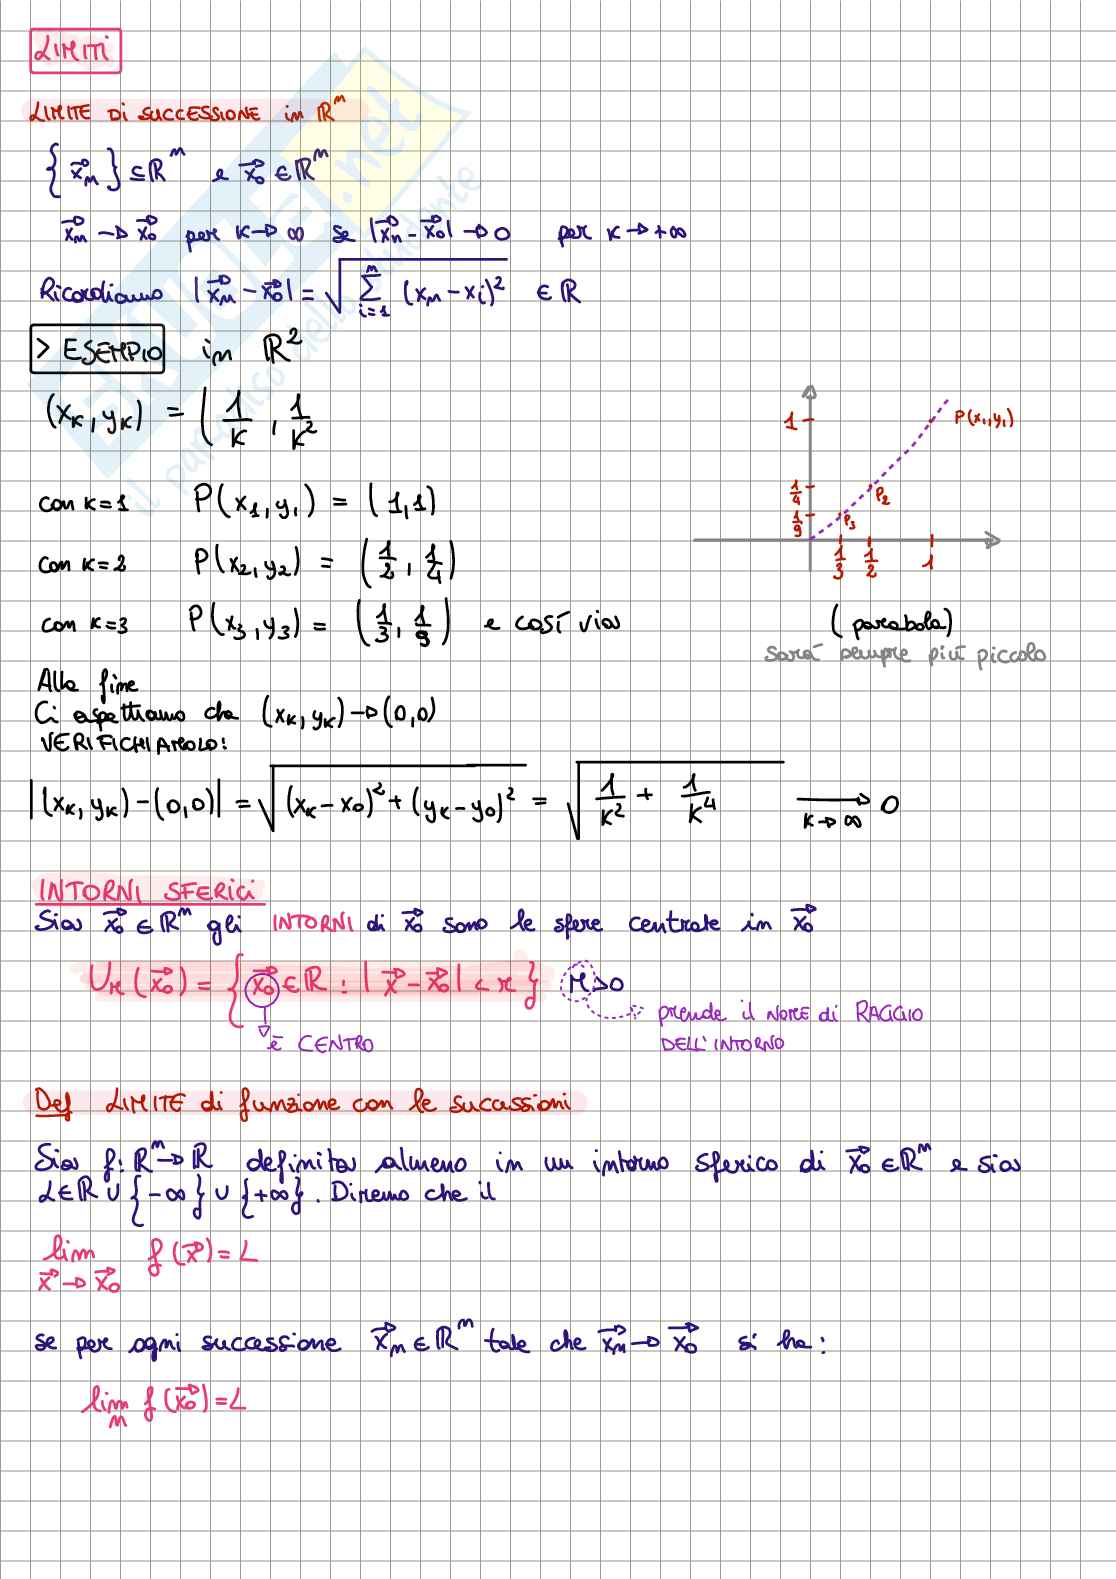 LIMITI
LIMITE DI SUCCESSIONE in ℝⁿ
{x⃗ₙ} ⊆ ℝⁿ e x⃗₀ ∈ ℝⁿ
x⃗ₙ → x⃗₀ per k→∞ se |x⃗ₙ - x⃗₀| → 0 per k→+∞
Ricordiamo |x⃗ₙ - x⃗₀| = √(∑ᵢ₌₁ⁿ (xₙ - xᵢ)²) ∈ ℝ
> ESEMPIO in ℝ²
(xₖ, yₖ) = (1/k , 1/k²
con k=1 P(x₁, y₁) = (1,1)
con k=2 P(x₂, y₂) = (1/2, 1/4)
con k=3 P(x₃, y₃) = (1/3, 1/9) e così via
1
1/4
1/9
P(x₁,y₁)
P₂
P₃
1/3 1/2 1
(parabola)
sarà sempre più piccolo
Alla fine
Ci aspettiamo che (xₖ, yₖ) → (0,0)
VERIFICHIAMOLO:
|(xₖ, yₖ) - (0,0)| = √((xₖ - x₀)² + (yₖ - y₀)²) = √(1/k² + 1/k⁴) → 0
k→∞
INTORNI SFERICI
Sia x⃗₀ ∈ ℝⁿ gli INTORNI di x⃗₀ sono le sfere centrate in x⃗₀
Uᵣ(x⃗₀) = {x⃗₀ ∈ ℝ : |x⃗ - x⃗₀| < r} r>0
è CENTRO
prende il NOME di RAGGIO
DELL'INTORNO
Def LIMITE di funzione con le successioni
Sia f: ℝⁿ → ℝ definita almeno in un intorno sferico di x⃗₀ ∈ ℝⁿ e sia
L ∈ ℝ ∪ {-∞} ∪ {+∞}. Diremo che il
lim f(x⃗) = L
x⃗ → x⃗₀
se per ogni successione x⃗ₙ ∈ ℝⁿ tale che x⃗ₙ → x⃗₀ si ha:
lim f(x⃗₀) = L
n